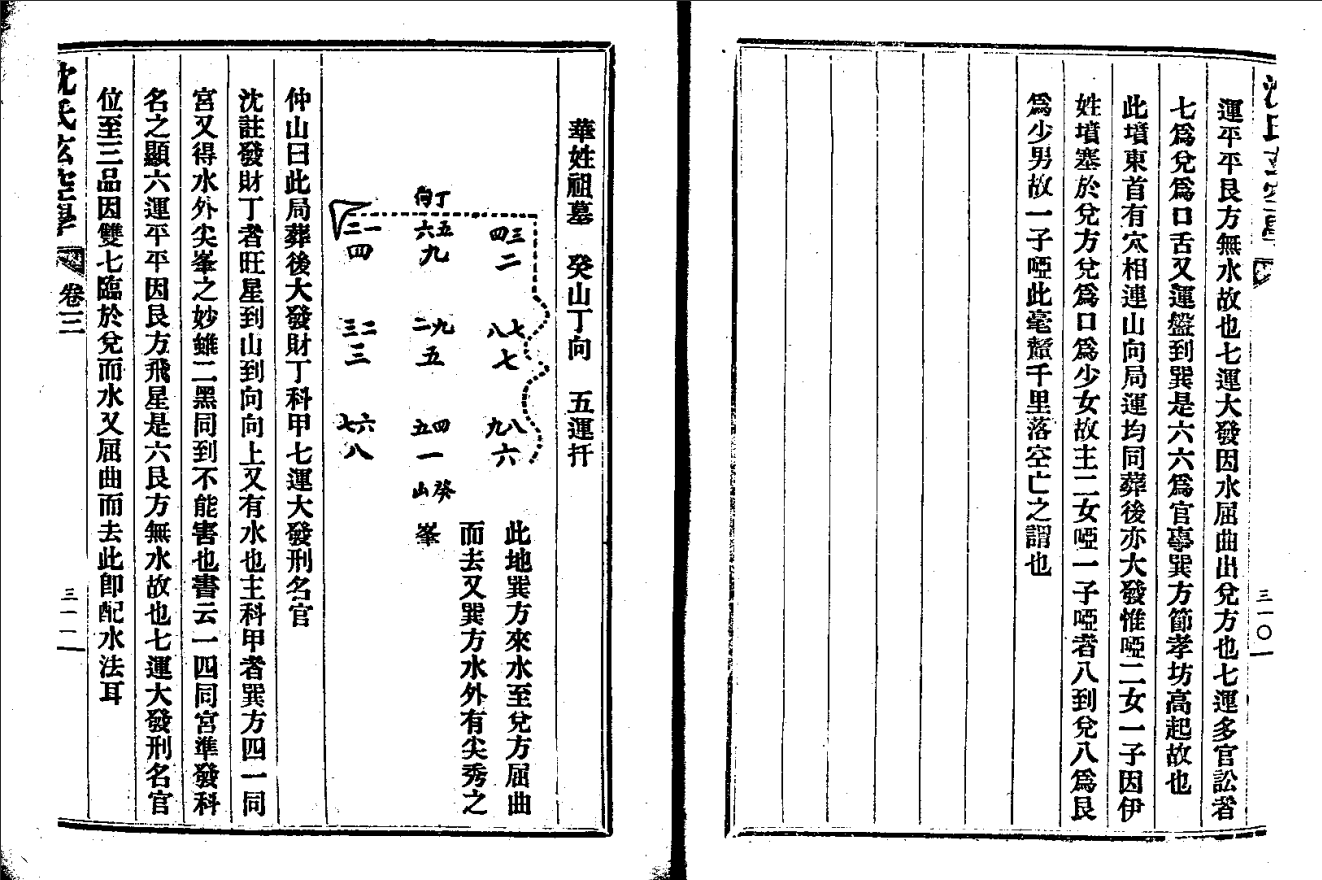 運平平艮方無水故也七運大發因水屈曲出兌方也七運多官訟者
七爲兌爲口舌又運盤到巽是六六爲官事巽方節孝坊高起故也
此墳東首有穴相連山向局運均同葬後亦大發惟啞二女一子因伊
姓墳塞於兌方兌爲口爲少女故主二女啞一子啞者八到兌八爲艮
爲少男故一子啞此毫釐千里落空亡之謂也
三一〇
華姓祖墓　癸山丁向　五運扦
丁向
二一　六五　四三
四　九　二
三二　一九　八七
三　五　七
七六　五四　九八
八　一　六
癸山
此地巽方來水至兌方屈曲
而去又巽方水外有尖秀之
峯
仲山曰此局葬後大發財丁科甲七運大發刑名官
沈註發財丁者旺星到山到向向上又有水也主科甲者巽方四一同
宮又得水外尖峯之妙雖二黑同到不能害也書云一四同宮準發科
名之顯六運平平因艮方飛星是六艮方無水故也七運大發刑名官
位至三品因雙七臨於兌而水又屈曲而去此卽配水法耳
沈氏玄空學　卷三
三一一